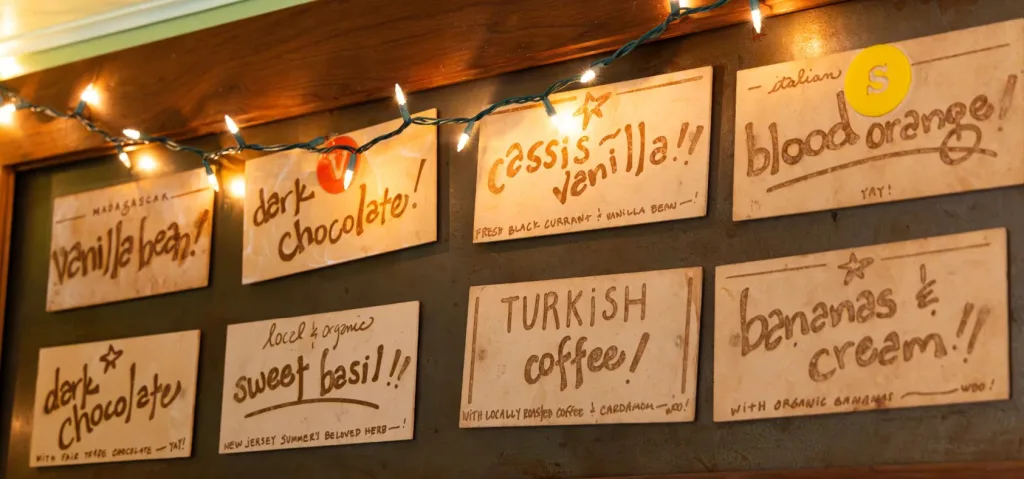 MADAGASCAR
vanilla bean!
V
dark
chocolate!
cassis
vanilla!!
FRESH BLACK CURRANT & VANILLA BEAN —!
italian
S
blood orange!
YAY!
dark
chocolate
WITH FAIR TRADE CHOCOLATE — YAY!
local & organic
sweet basil!!
NEW JERSEY SUMMER'S BELOVED HERB —!
TURKISH
coffee!
WITH LOCALLY ROASTED COFFEE & CARDAMOM — WOO!
bananas &
cream!!
WITH ORGANIC BANANAS — WOO!